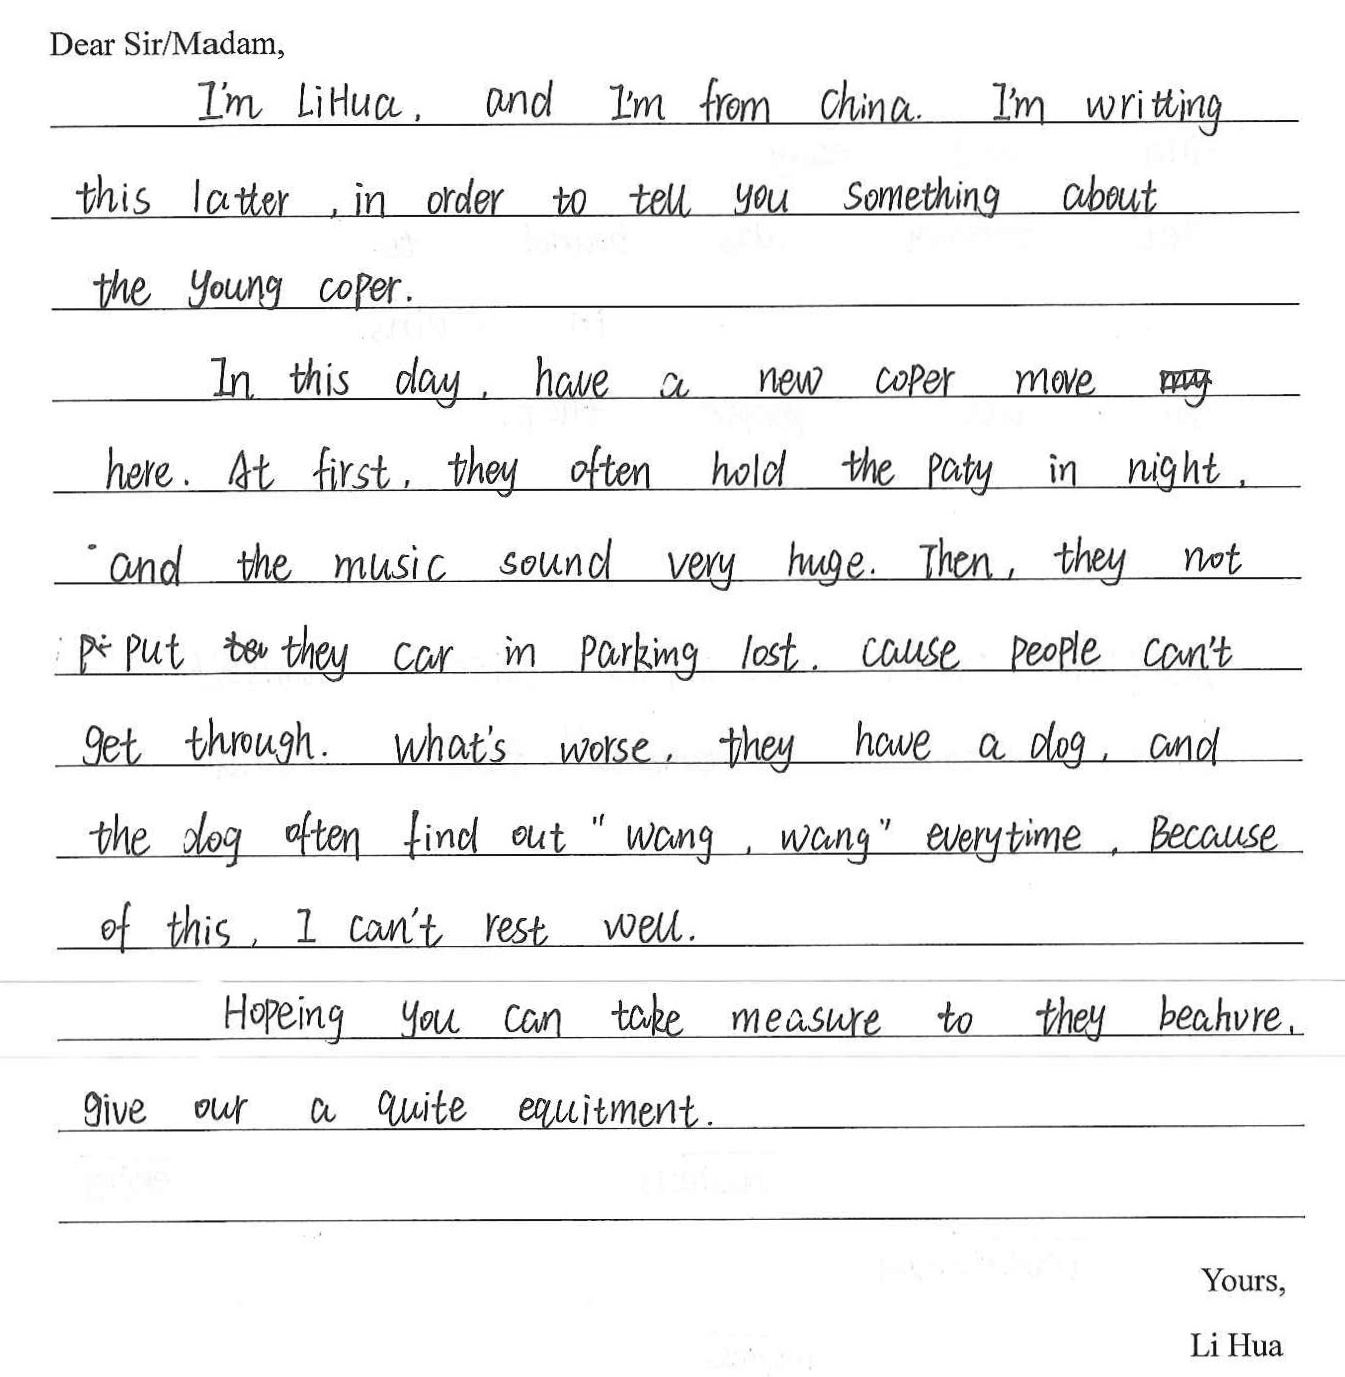 Dear Sir/Madam,
I'm LiHua, and I'm from China. I'm writting
this latter, in order to tell you something about
the young coper.
In this day, have a new coper move
here. At first, they often hold the paty in night,
and the music sound very huge. Then, they not
put they car in parking lost. cause people can't
get through. What's worse, they have a dog, and
the dog often find out "wang, wang" everytime, Because
of this, I can't rest well.
Hopeing you can take measure to they beahvre,
give our a quite equitment.
Yours,
Li Hua